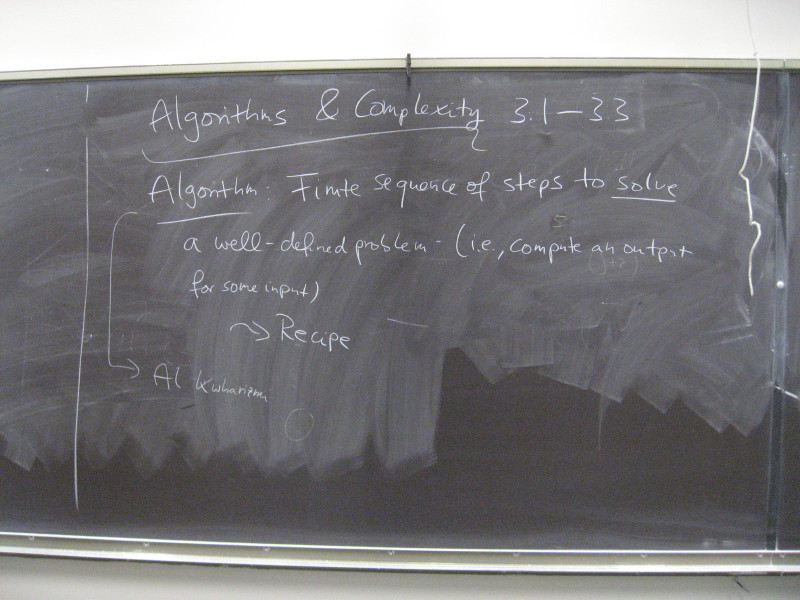 Algorithms & Complexity 3.1-3.3
Algorithm: Finite sequence of steps to solve
a well-defined problem - (i.e., compute an output
for some input)
~> Recipe
Al Kwharizmi